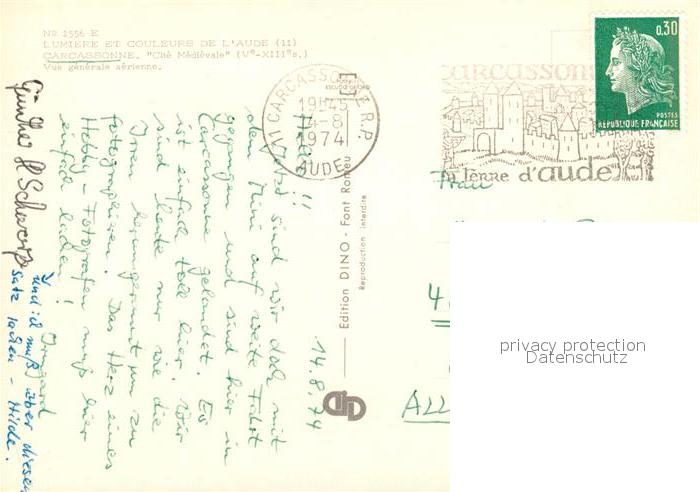 No 1556 E
LUMIERE ET COULEURS DE L'AUDE (11)
CARCASSONNE. "Cité Médiévale" (Ve-XIIIe s.)
Vue générale aérienne.
14.8.74
Hallo!!
Jetzt sind wir doch mit
dem Mini auf weite Fahrt
gegangen und sind hier in
Carcassonne gelandet. Es
ist einfach toll hier. Wir
sind heute nur wie die
Irren herumgerannt um zu
fotographieren. Das Herz eines
Hobby-Fotografen muß hier
einfach lachen!
Irmgard
Und ich muß über diesen
Satz lachen -
Günther
Edition DINO - Font Romeu
Reproduction interdite
CARCASSONNE R.P.
19H45
14-8
1974
AUDE
carcassonne
en terre d'aude
0,30
POSTES
REPUBLIQUE FRANÇAISE
Frau
4
ALL
privacy protection
Datenschutz